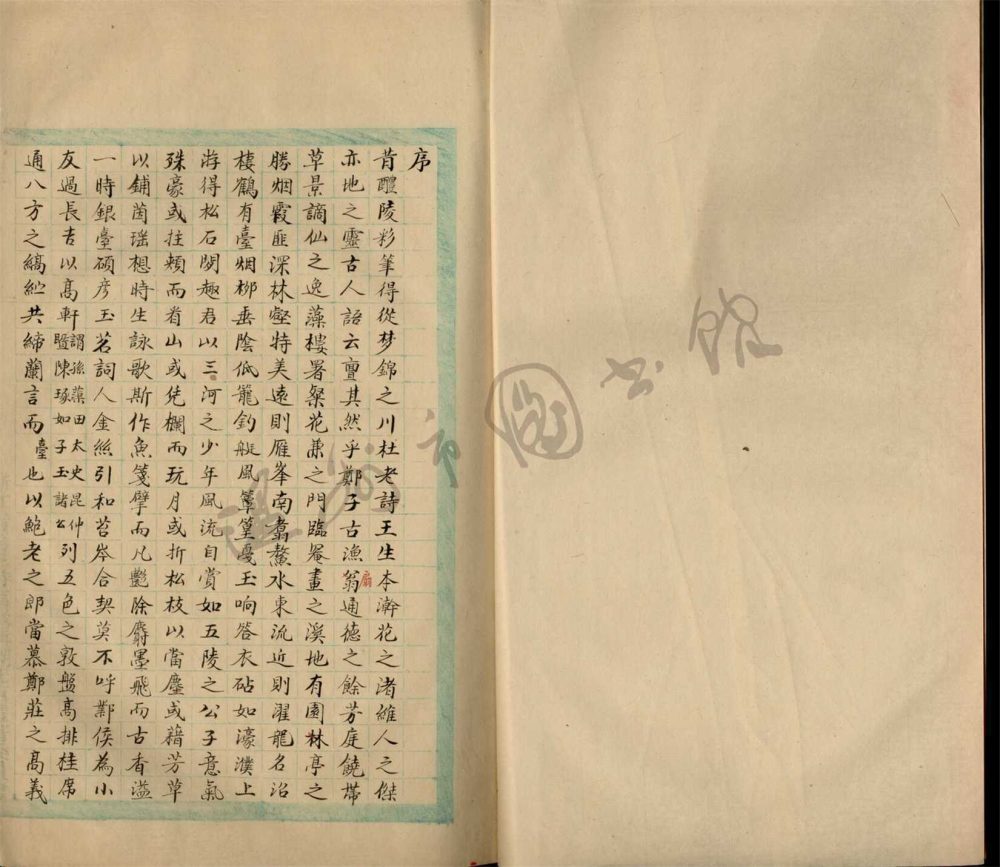 序
昔醴陵彩筆得從梦錦之川杜老詩王生本澣花之渚維人之傑
亦地之靈古人語云亶其然乎鄭子古漁翁通德之餘芳庭饒帶
扇
草景謫仙之逸藻樓署粲花肅之門臨罨畫之溪地有園林亭之
勝烟霞匪深林壑特美遠則雁峯南翥鰲水東流近則濯龍名沼
棲鶴有臺烟栁垂陰低籠釣艇風篁戛玉响答衣砧如濠濮上
游得松石閒趣君以三河之少年風流自賞如五陵之公子意氣
殊豪或拄頰而看山或凭欄而玩月或折松枝以當麈或藉芳草
以鋪茵瑶想時生詠歌斯作魚箋擘而凡艷除麝墨飛而古香溢
一時銀臺碩彥玉茗詞人金絲引和苔岑合契莫不呼鄴侯為小
友過長吉以高軒謂孫蕖田太史昆仲暨陳琢如子玉諸公列五色之敦盤高排桂席
通八方之縞紵共締蘭言而臺也以鮑老之郎當慕鄭莊之高義
溫州市圖书館